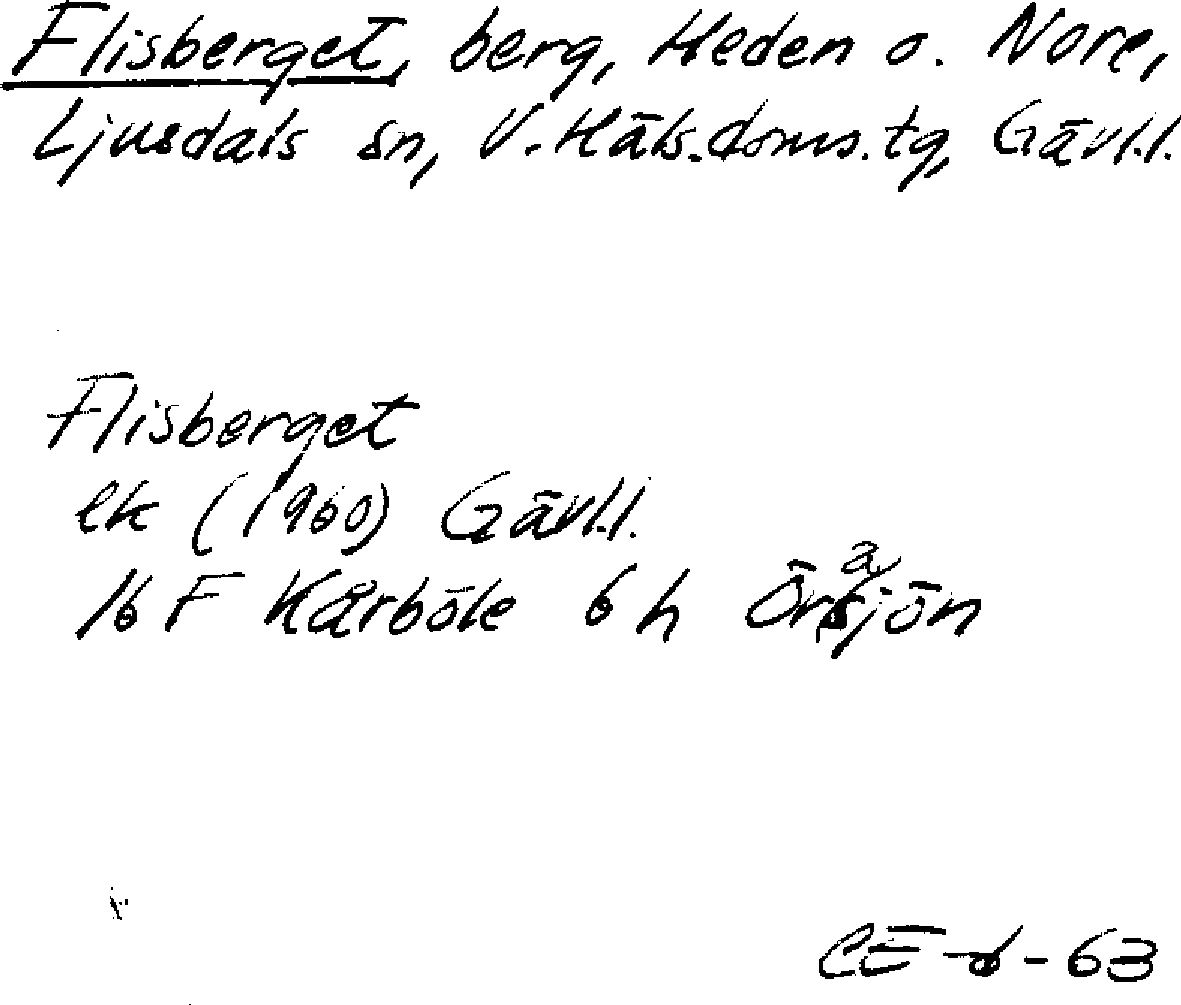 Flisberget, berg, Heden o. Nore,
Ljusdals sn, V. Häls. doms. tg, Gävl.l.
Flisberget
ek (1960) Gävl.l.
16 F Kårböle 6 h Örasjön
CE -6-63